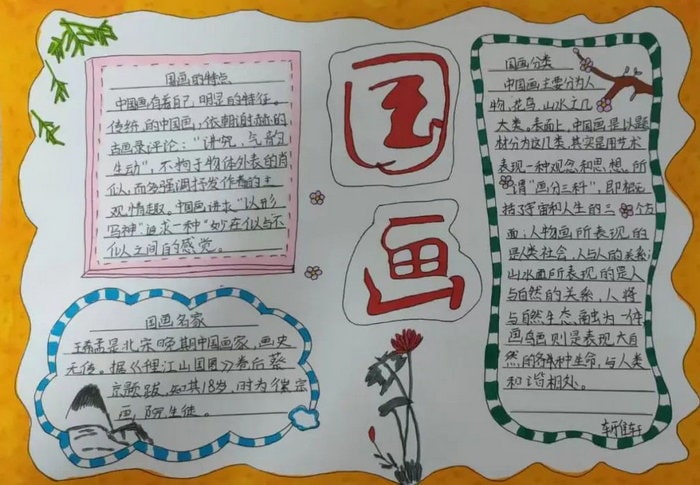 国画
国画的特点
中国画有着自己明显的特征。
传统的中国画，依期谢赫的
古画录评论："讲究，气韵
生动"，不拘于物体外表的肖
似，而多强调抒发作者的主
观情趣。中国画讲求"以形
写神"追求一种"妙在似与不
似之间"的感觉。
国画名家
王希孟是北宋晚期中国画家，画史
无传。据《千里江山图》卷后蔡
京题跋，知其18岁，时为徽宗
画院生徒。
国画分类
中国画主要分为人
物、花鸟、山水这几
大类。表面上，中国画是以题
材分为这几类，其实是用艺术
表现一种观念和思想。所
谓"画分三科"，即概
括了宇宙和人生的三个方
面：人物画所表现的
是人类社会，人与人的关系；
山水画所表现的是人
与自然的关系，人将
与自然生态，融为一体
画鸟则是表现大自
然的各种生命，与人类
和谐相处。